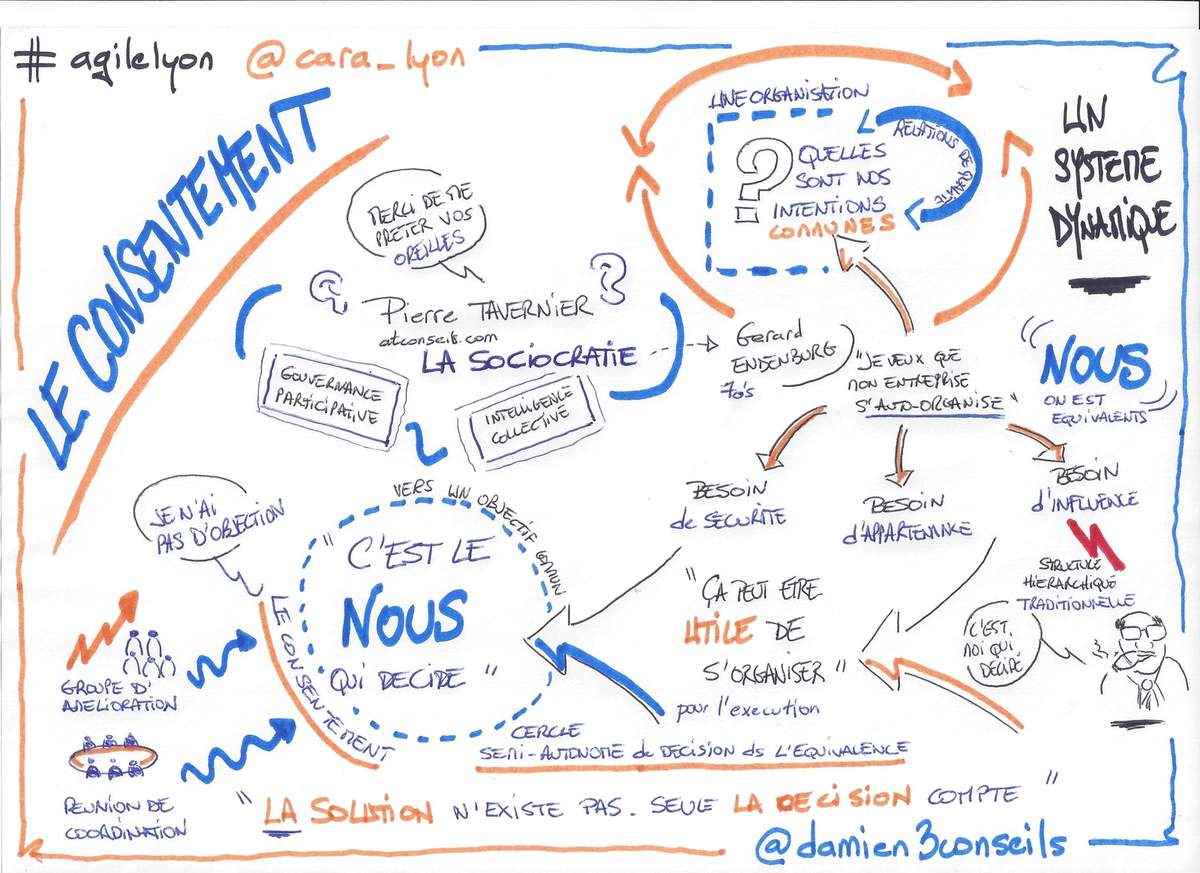 # agilelyon @cara_lyon
LE CONSENTEMENT
MERCI DE ME
PRETER VOS
OREILLES
Pierre TAVERNIER
atconseils.com
LA SOCIOCRATIE
GOUVERNANCE
PARTICIPATIVE
INTELLIGENCE
COLLECTIVE
UNE ORGANISATION
?
QUELLES
SONT NOS
INTENTIONS
COMMUNES
RELATIONS DE QUALITE
UN
SYSTEME
DYNAMIQUE
Gerard
ENDENBURG
70's
"JE VEUX QUE
MON ENTREPRISE
S'AUTO-ORGANISE"
"NOUS
ON EST
EQUIVALENTS"
BESOIN
de SECURITE
BESOIN
d'APPARTENANCE
BESOIN
d'INFLUENCE
STRUCTURE
HIERARCHIQUE
TRADITIONNELLE
C'EST
MOI QUI
DECIDE
"ÇA PEUT ETRE
UTILE DE
S'ORGANISER"
pour l'execution
VERS UN OBJECTIF COMMUN
"C'EST LE
NOUS
QUI DECIDE"
JE N'AI
PAS D'OBJECTION
LE CONSENTEMENT
GROUPE D'
AMELIORATION
REUNION DE
COORDINATION
CERCLE
SEMI-AUTONOME de DECISION ds L'EQUIVALENCE
"LA SOLUTION N'EXISTE PAS. SEULE LA DECISION COMPTE"
@damien3conseils